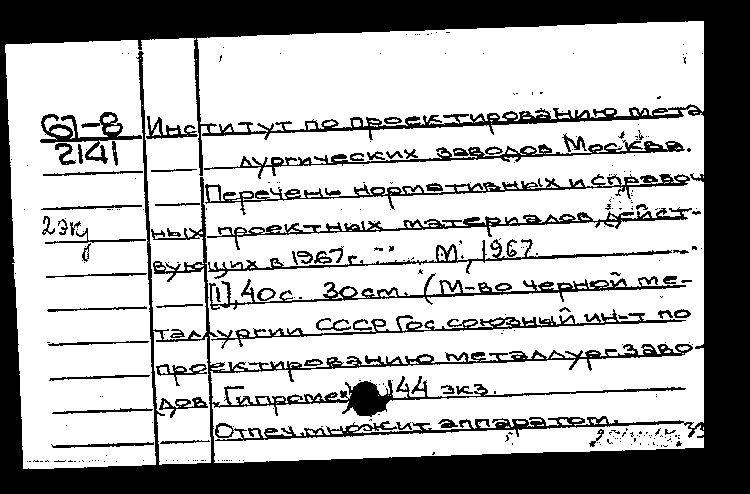 67-8
2141
2 экз
Институт по проектированию мета
лургических заводов. Москва.
Перечень нормативных и справоч
ных проектных материалов, дейст-
вующих в 1967 г. М., 1967.
[1], 40 с. 30 см. (М-во черной ме-
таллургии СССР. Гос. союзный ин-т по
проектированию металлург. заво-
дов. Гипромез) 144 экз.
Отпеч. множит. аппаратом.